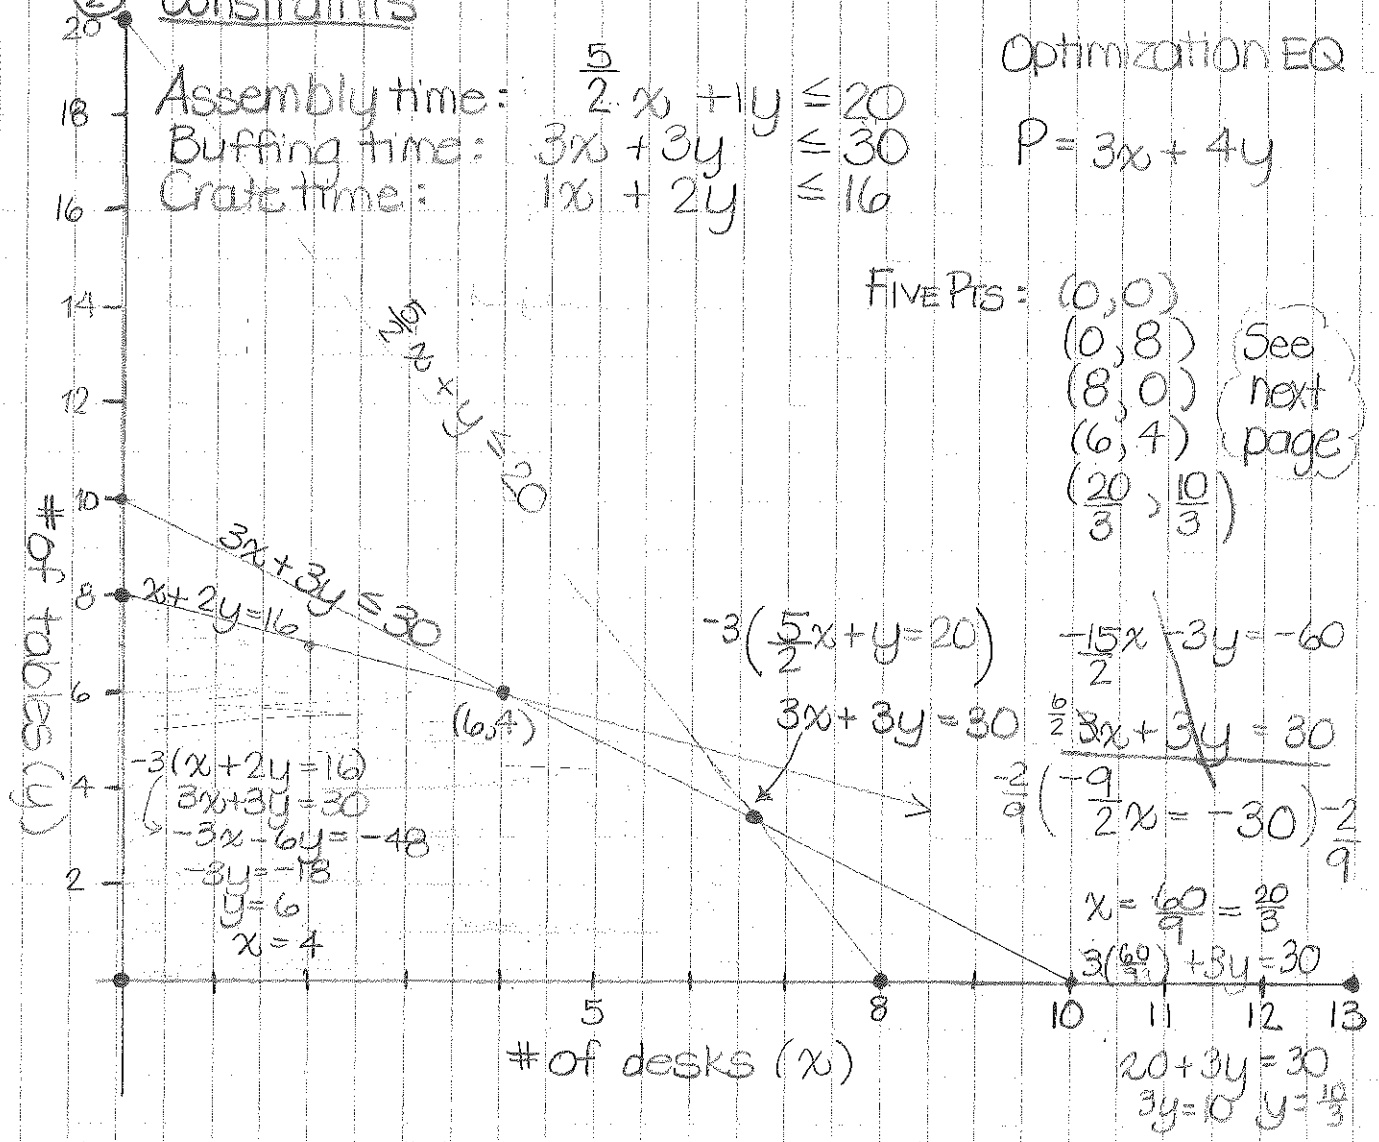 ② Constraints
Assembly time: 5/2 x + 1y ≤ 20
Buffing time: 3x + 3y ≤ 30
Crate time: 1x + 2y ≤ 16
Optimization EQ
P = 3x + 4y
Five Pts: (0,0)
(0,8)
(8,0)
(6,4)
(20/3, 10/3)
See
next
page
20
18
16
14
12
10
8
6
4
2
# of tables (y)
5/2 x + y ≤ 20
3x + 3y ≤ 30
x + 2y = 16
(6,4)
-3(x + 2y = 16)
3x + 3y = 30
-3x - 6y = -48
-3y = -18
y = 6
x = 4
-3(5/2 x + y = 20)
3x + 3y = 30
-15/2 x - 3y = -60
6/2 3x + 3y = 30
-2/9 (-9/2 x = -30) -2/9
x = 60/9 = 20/3
3(60/9) + 3y = 30
20 + 3y = 30
3y = 10 y = 10/3
5 8 10 11 12 13
# of desks (x)